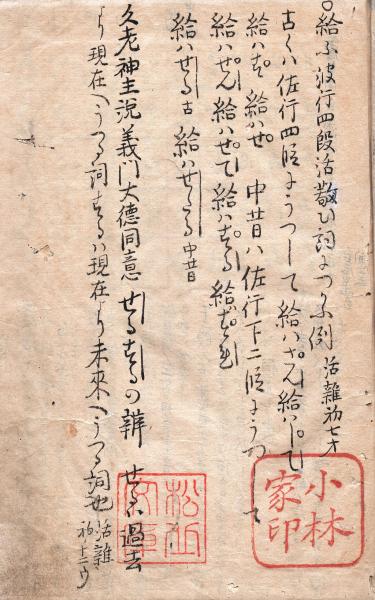 ○給ふ波行四段活敬ひ詞につかふ例 活雑初七才
古くハ佐行四段にうつして給ハさん給ハして
給ハす 給ハせ 中昔ハ佐行下二段にうつして
給ハせん 給ハせて 給ハする 給ハすれ
給ハせる 古 給ハせたる 中昔
久老神主説義門大徳同意 せるするの辨 せるハ過去
より現在へうつる詞するハ現在より未來へうつる詞也 活雑初十二ウ
小林家印
松